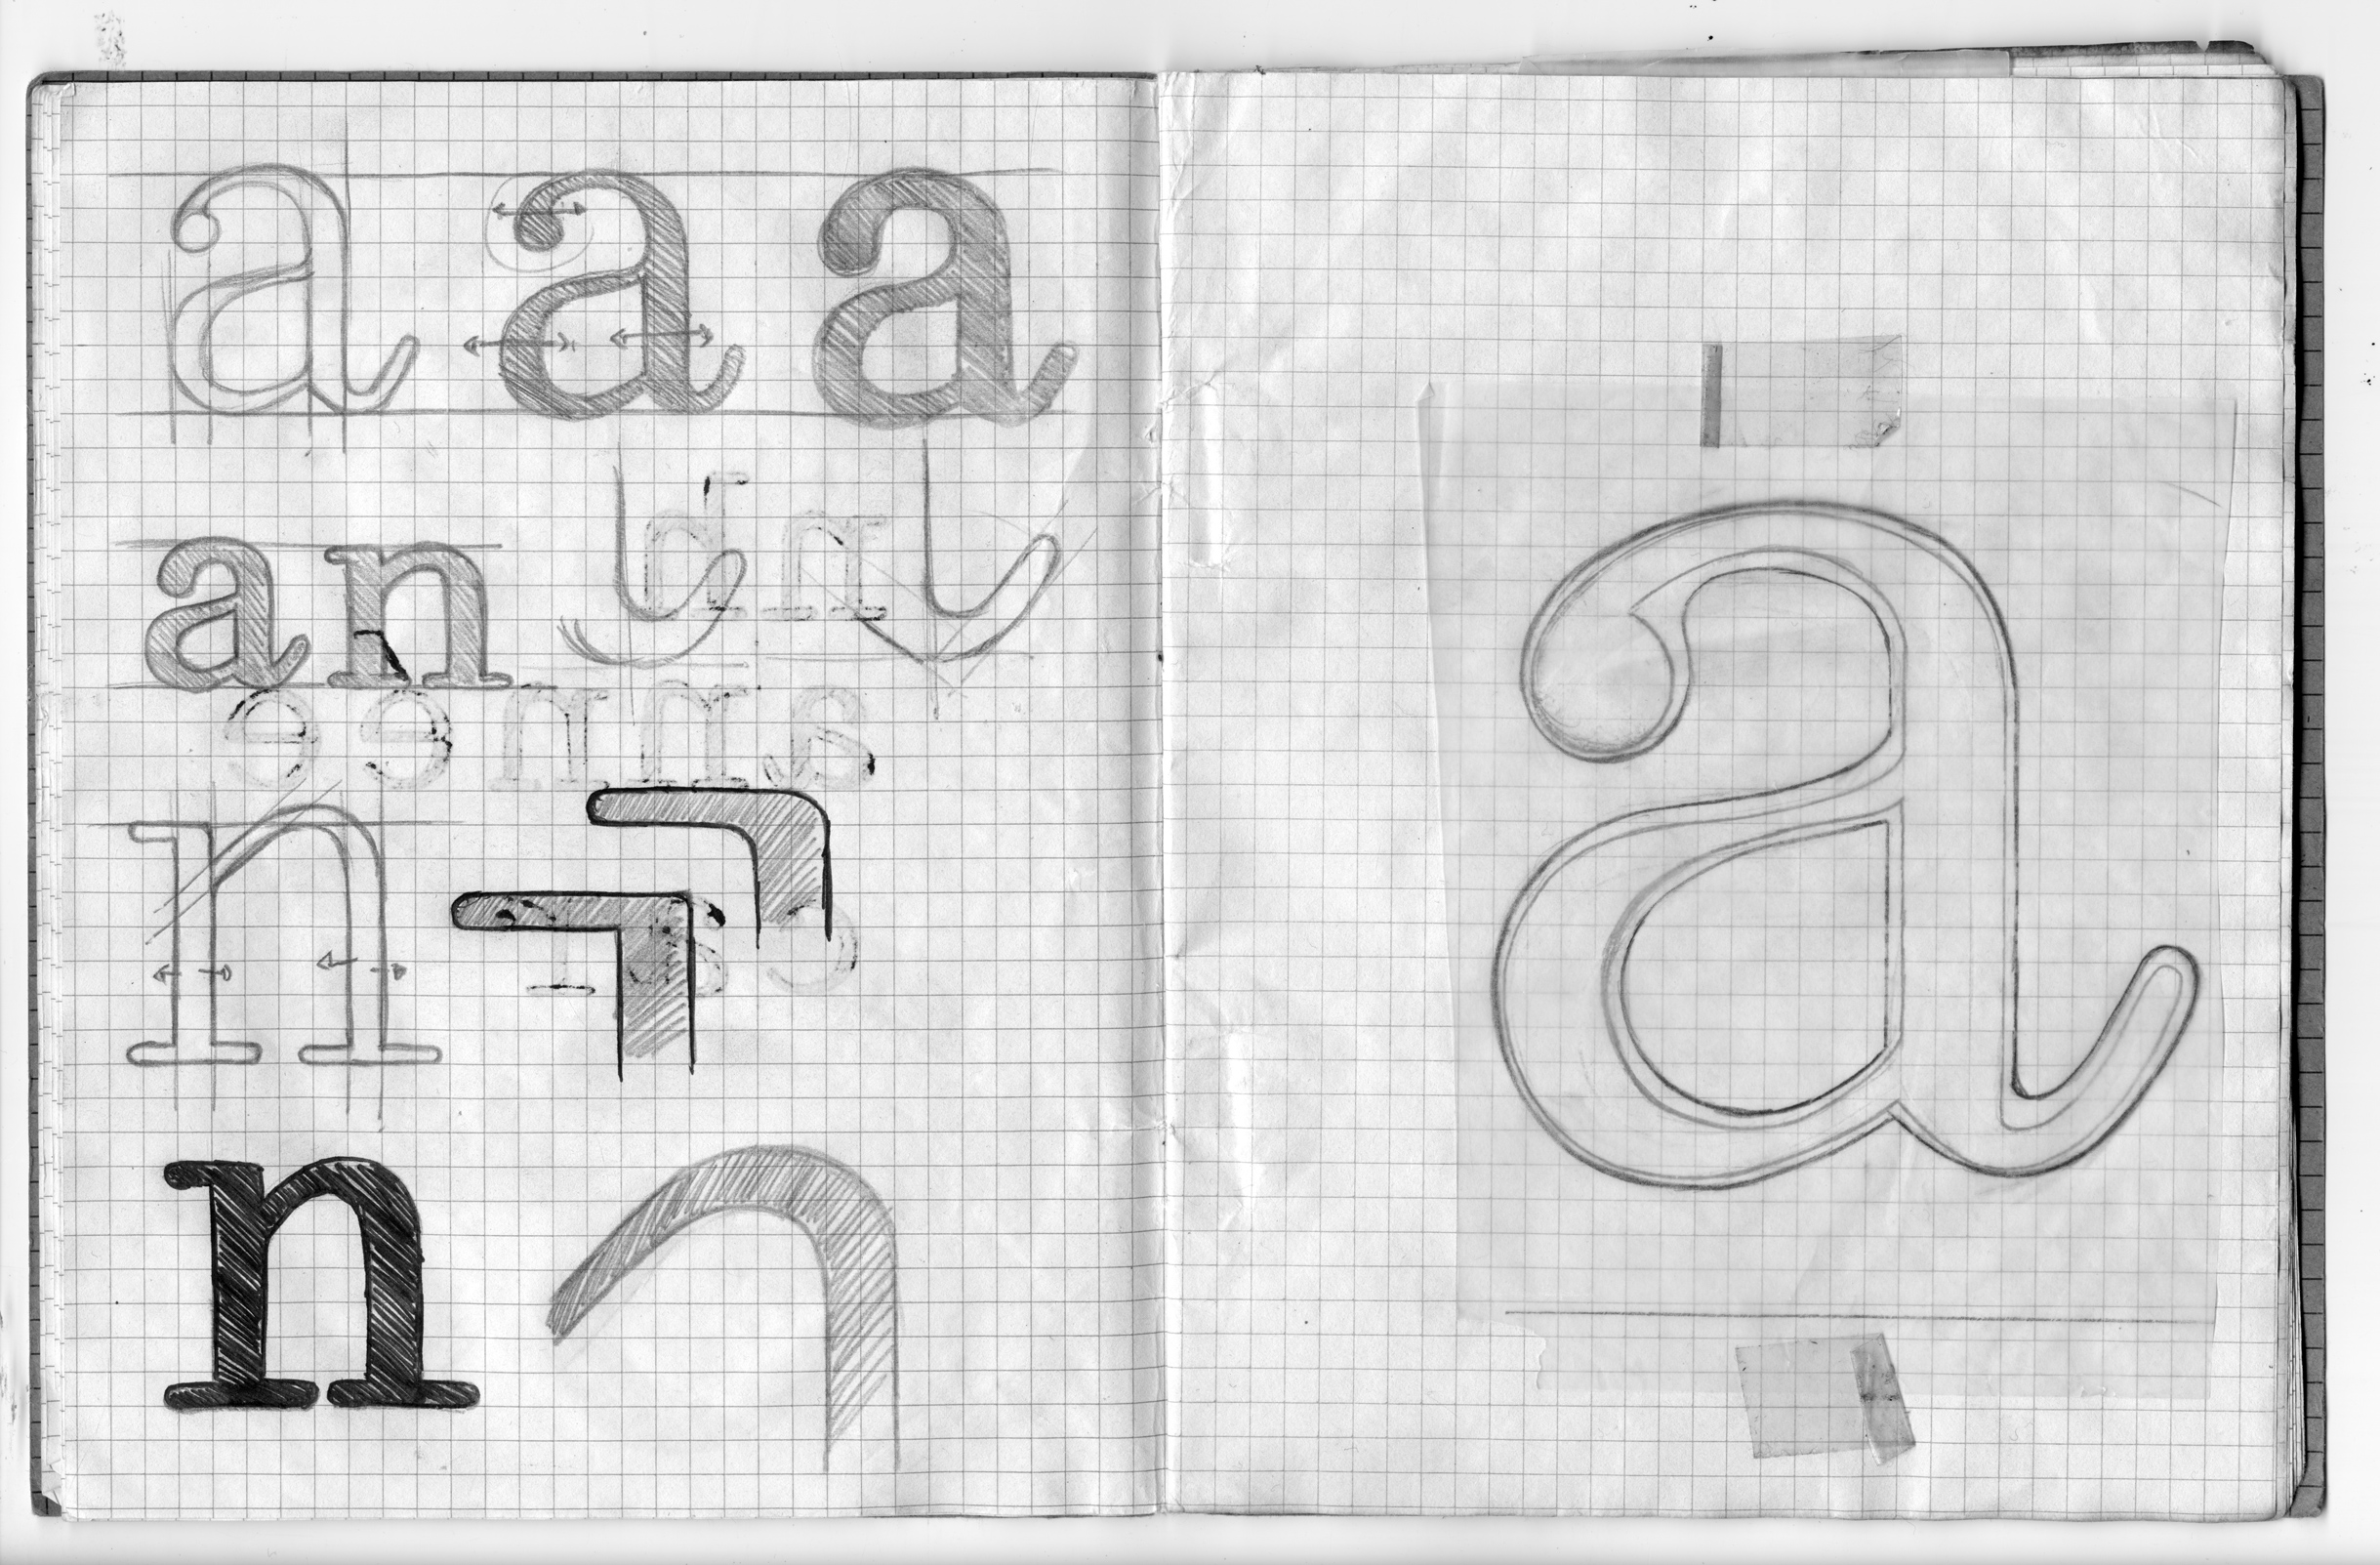 a a a
an
n
n
a